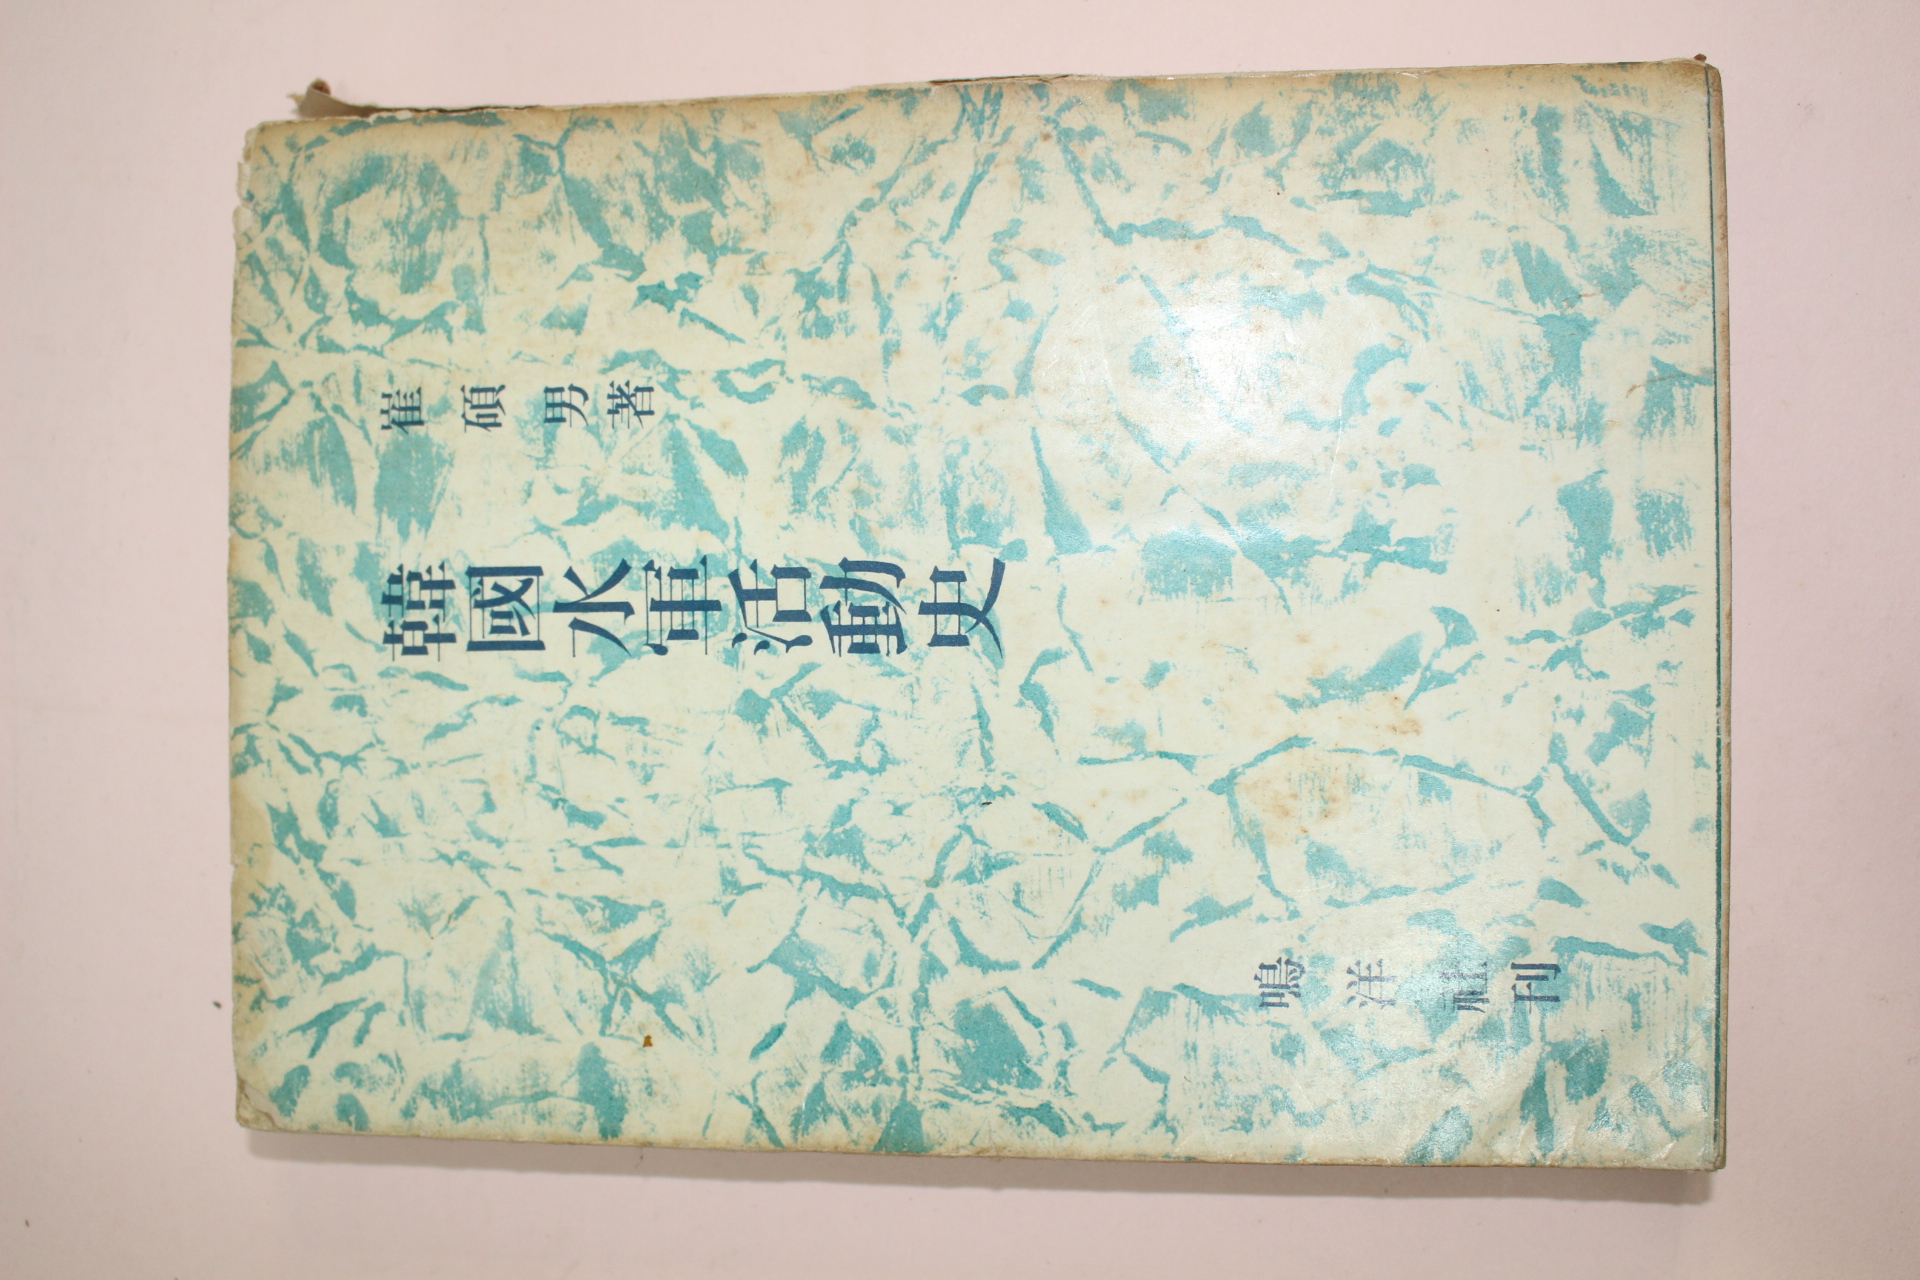 崔碩男著
韓國水軍活動史
鳴洋社刊